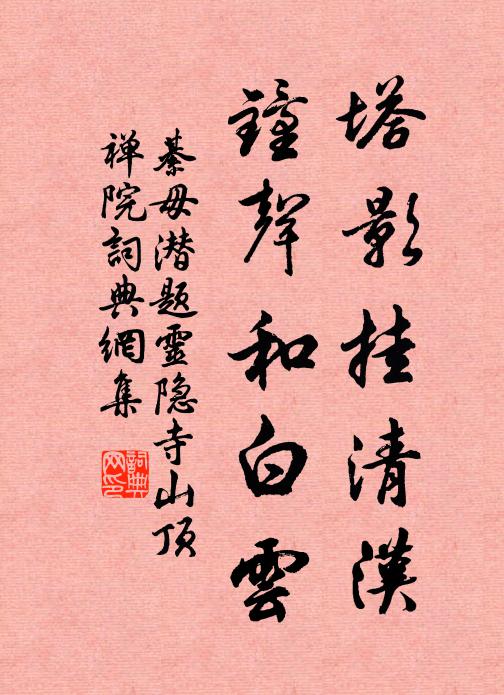 塔影挂清漢
鐘聲和白雲
綦毋潜題靈隐寺山顶
禅院詞典網集
詞典网印